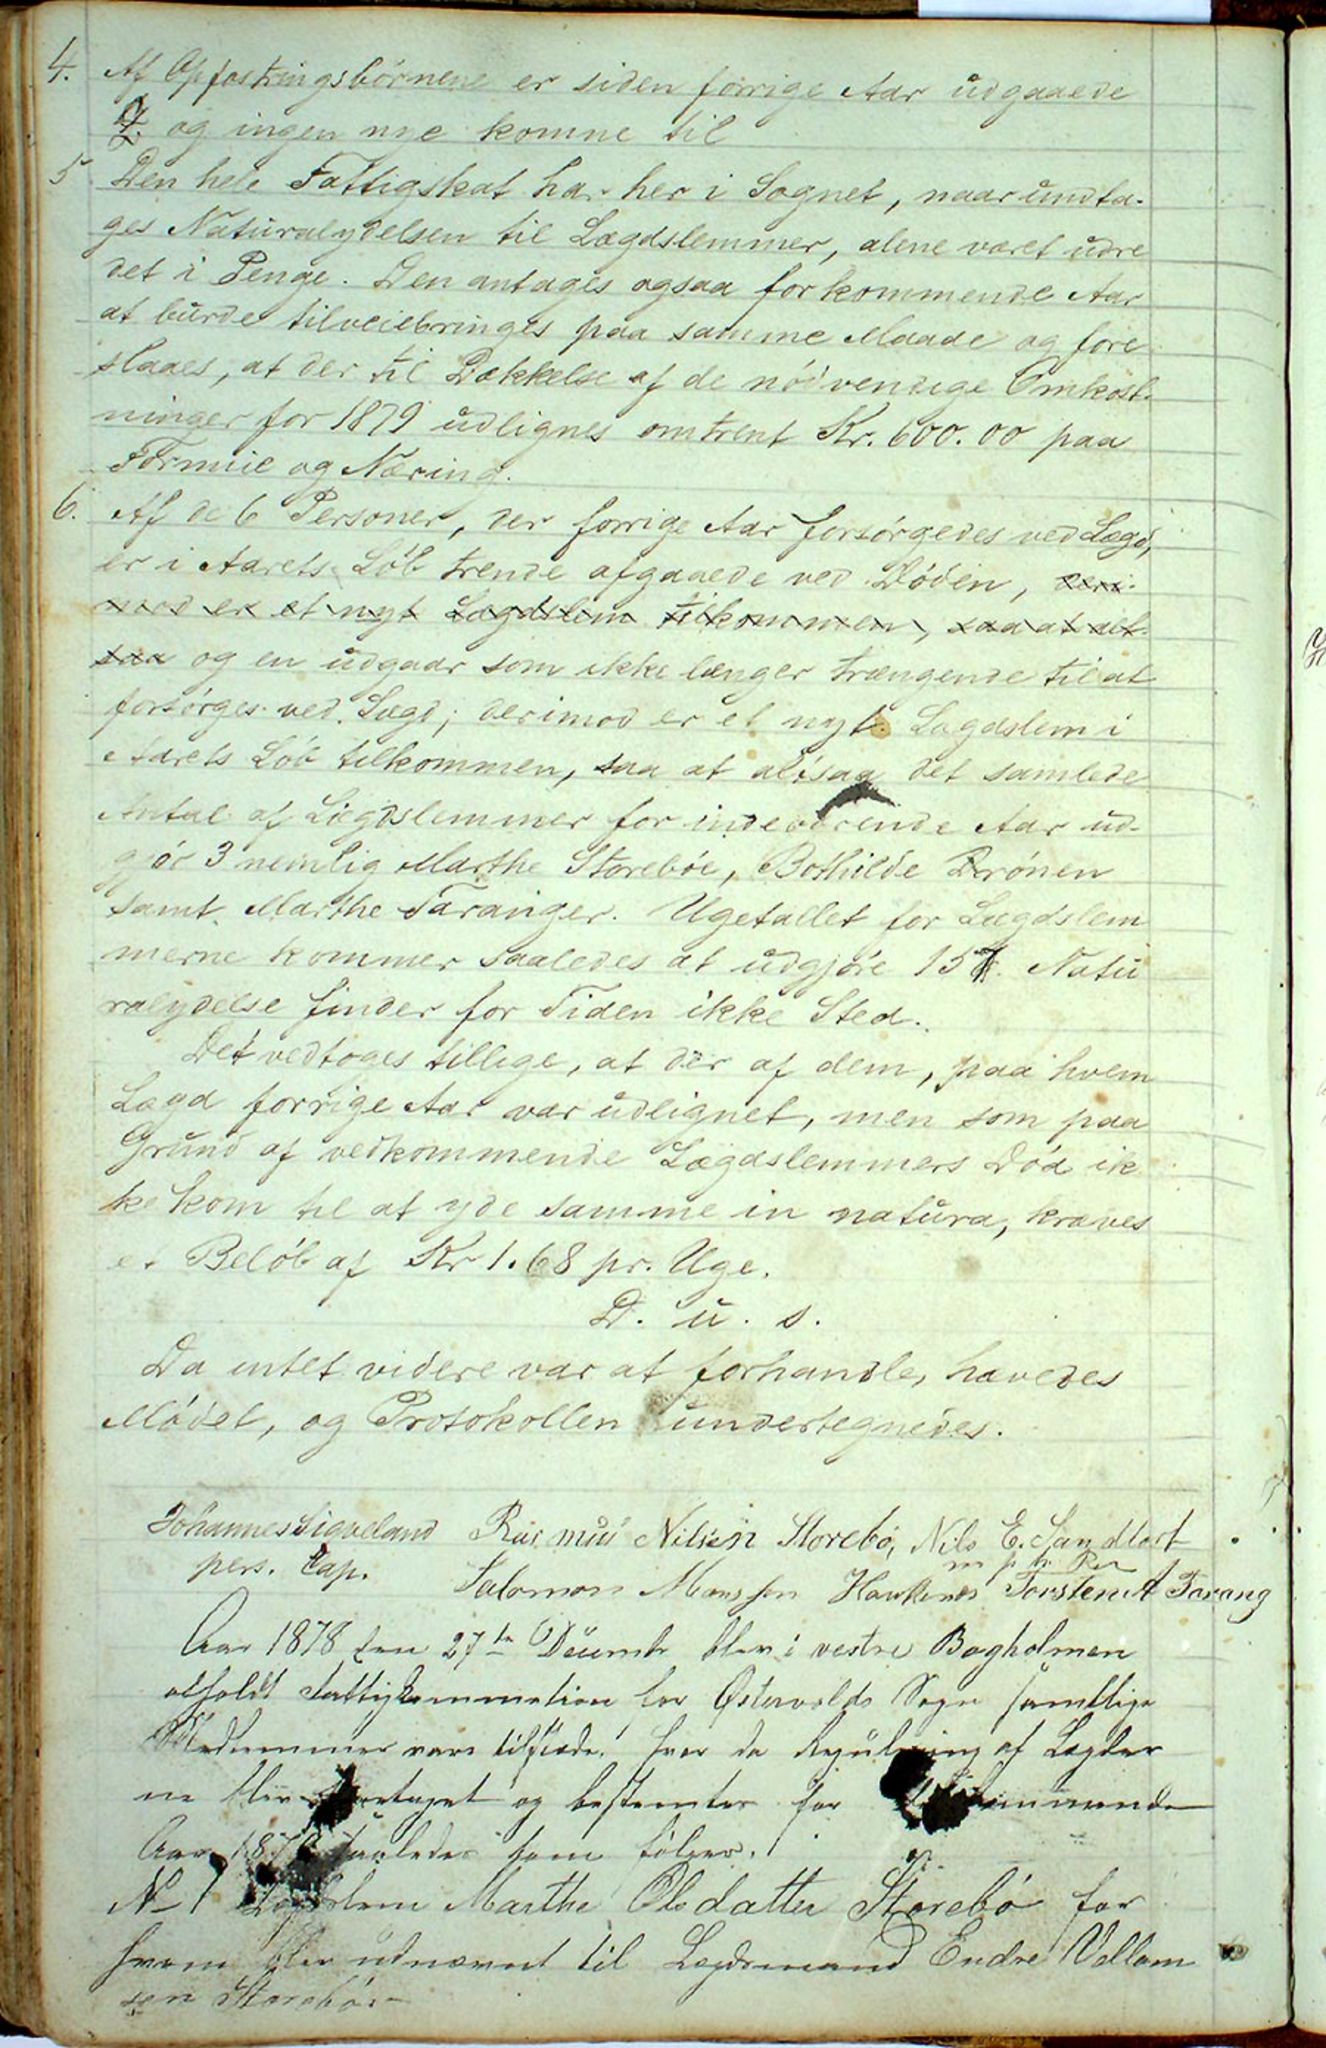 4. Af Opfostringsbörnene er siden forrige Aar udgaaede
2. og ingen nye komne til
5 Den hele Fattigskat har her i Sognet, naar undta-
ges Naturalydelsen til Lægdslemmer, alene været udre
det i Penge. Den antages ogsaa for kommende Aar
at burde tilveiebringes paa samme Maade og fore
slaaes, at der til Dækkelse af de nödvendige Omkost-
ninger for 1879 udlignes omtrent Kr. 600.00 paa
Formue og Næring.
6. Af de 6 Personer, der forrige Aar forsörgedes ved Lægd,
er i Aarets Löb trende afgaaede ved Döden, deri-
mod er et nyt Lægdslem tilkommen, saa at alt-
saa og en udgaar som ikke længer trængende til at
forsörges ved Lægd; derimod er et nyt Lægdslem i
Aarets Löb tilkommen, saa at altsaa det samlede
Antal af Lægdslemmer for indeværende Aar ud-
gjör 3 nemlig Marthe Storeböe, Bothilde Drönen
samt Marthe Taranger. Ugetallet for Lægdslem
merne kommer saaledes at udgjöre 157. Natu
ralydelse finder for Tiden ikke Sted.
Det vedtoges tillige, at der af dem, paa hvem
Lægd forrige Aar var udlignet, men som paa
Grund af vedkommende Lægdslemmers Död ik
ke kom til at yde samme in natura, kræves
et Belöb af Kr 1.68 pr. Uge.
D. u. s.
Da intet videre var at forhandle, hævedes
Mödet, og Protokollen undertegnedes.
Johannes Sigveland Rasmus Nilsen Storebö, Nils E. Sandtort
pers. Cap. m p. P.
Salomon Monssen Haukenes Torsten A Tarang
Aar 1878 den 27de Decembr blev i vestre Bagholmen
afholdt Fattigkommission for Østervolds Sogn samtlige
Medlemmer vare tilstæde. hvor da Regulering af Lægder
ne blev foretaget og bestemtes for tilkommende
Aar 1879 saaledes som fölger.
No 1 Lægdslem Marthe Olsdatter Storebö for
hvem blev udnævnt til Lægdsmand Endre Vellom
sen Storebö.-